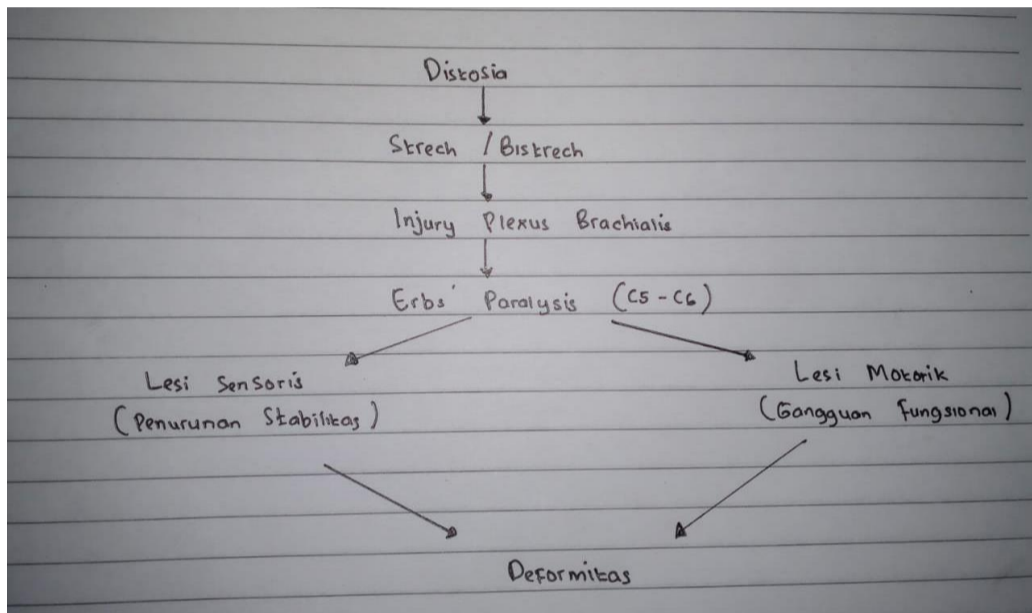 Distosia
Strech / Bistrech
Injury Plexus Brachialis
Erbs' Paralysis (C5 - C6)
Lesi Sensoris
(Penurunan Stabilitas)
Lesi Motorik
(Gangguan Fungsional)
Deformitas